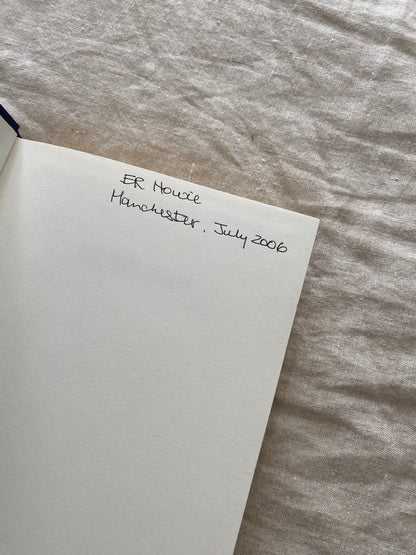 ER
Manchester, July 2006